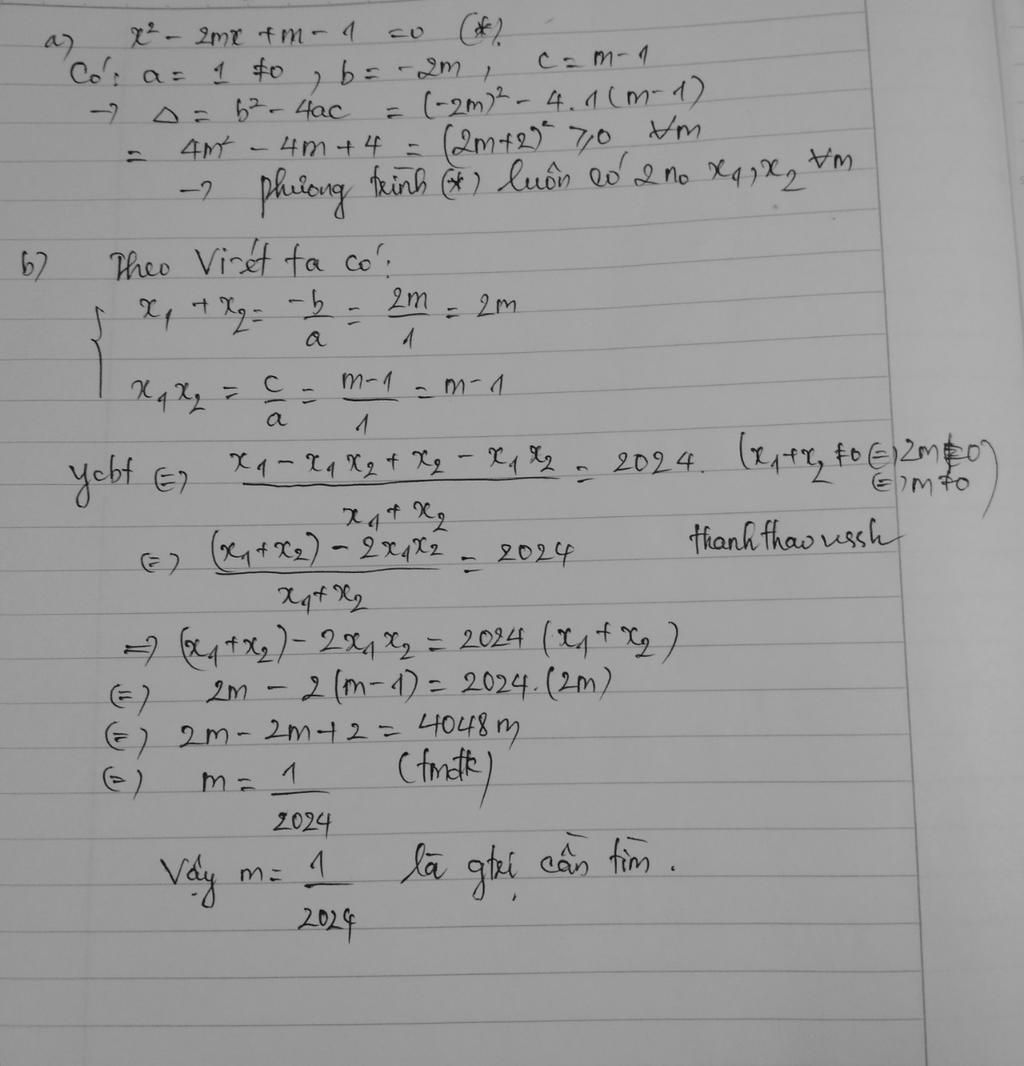 a) x² - 2mx + m - 1 = 0 (*).
Có: a = 1 ≠ 0 , b = -2m , c = m - 1
→ Δ = b² - 4ac = (-2m)² - 4.1(m-1)
= 4m² - 4m + 4 = (2m+2)² ⩾ 0 ∀m
→ phương trình (*) luôn có 2 no x₁, x₂ ∀m
b) Theo Vi-ét ta có:
{ x₁ + x₂ = -b/a = 2m/1 = 2m
x₁x₂ = c/a = m-1/1 = m-1
ycbt ⇔ x₁ - x₁x₂ + x₂ - x₁x₂ / x₁ + x₂ = 2024. (x₁+x₂ ≠ 0 ⇔ 2m ≠ 0
⇔ m ≠ 0)
⇔ (x₁+x₂) - 2x₁x₂ / x₁+x₂ = 2024
thanhthaoussh
⇒ (x₁+x₂) - 2x₁x₂ = 2024 (x₁+x₂)
⇔ 2m - 2(m-1) = 2024.(2m)
⇔ 2m - 2m + 2 = 4048m
⇔ m = 1/2024 (tmđk)
Vậy m = 1/2024 là gtrị cần tìm.